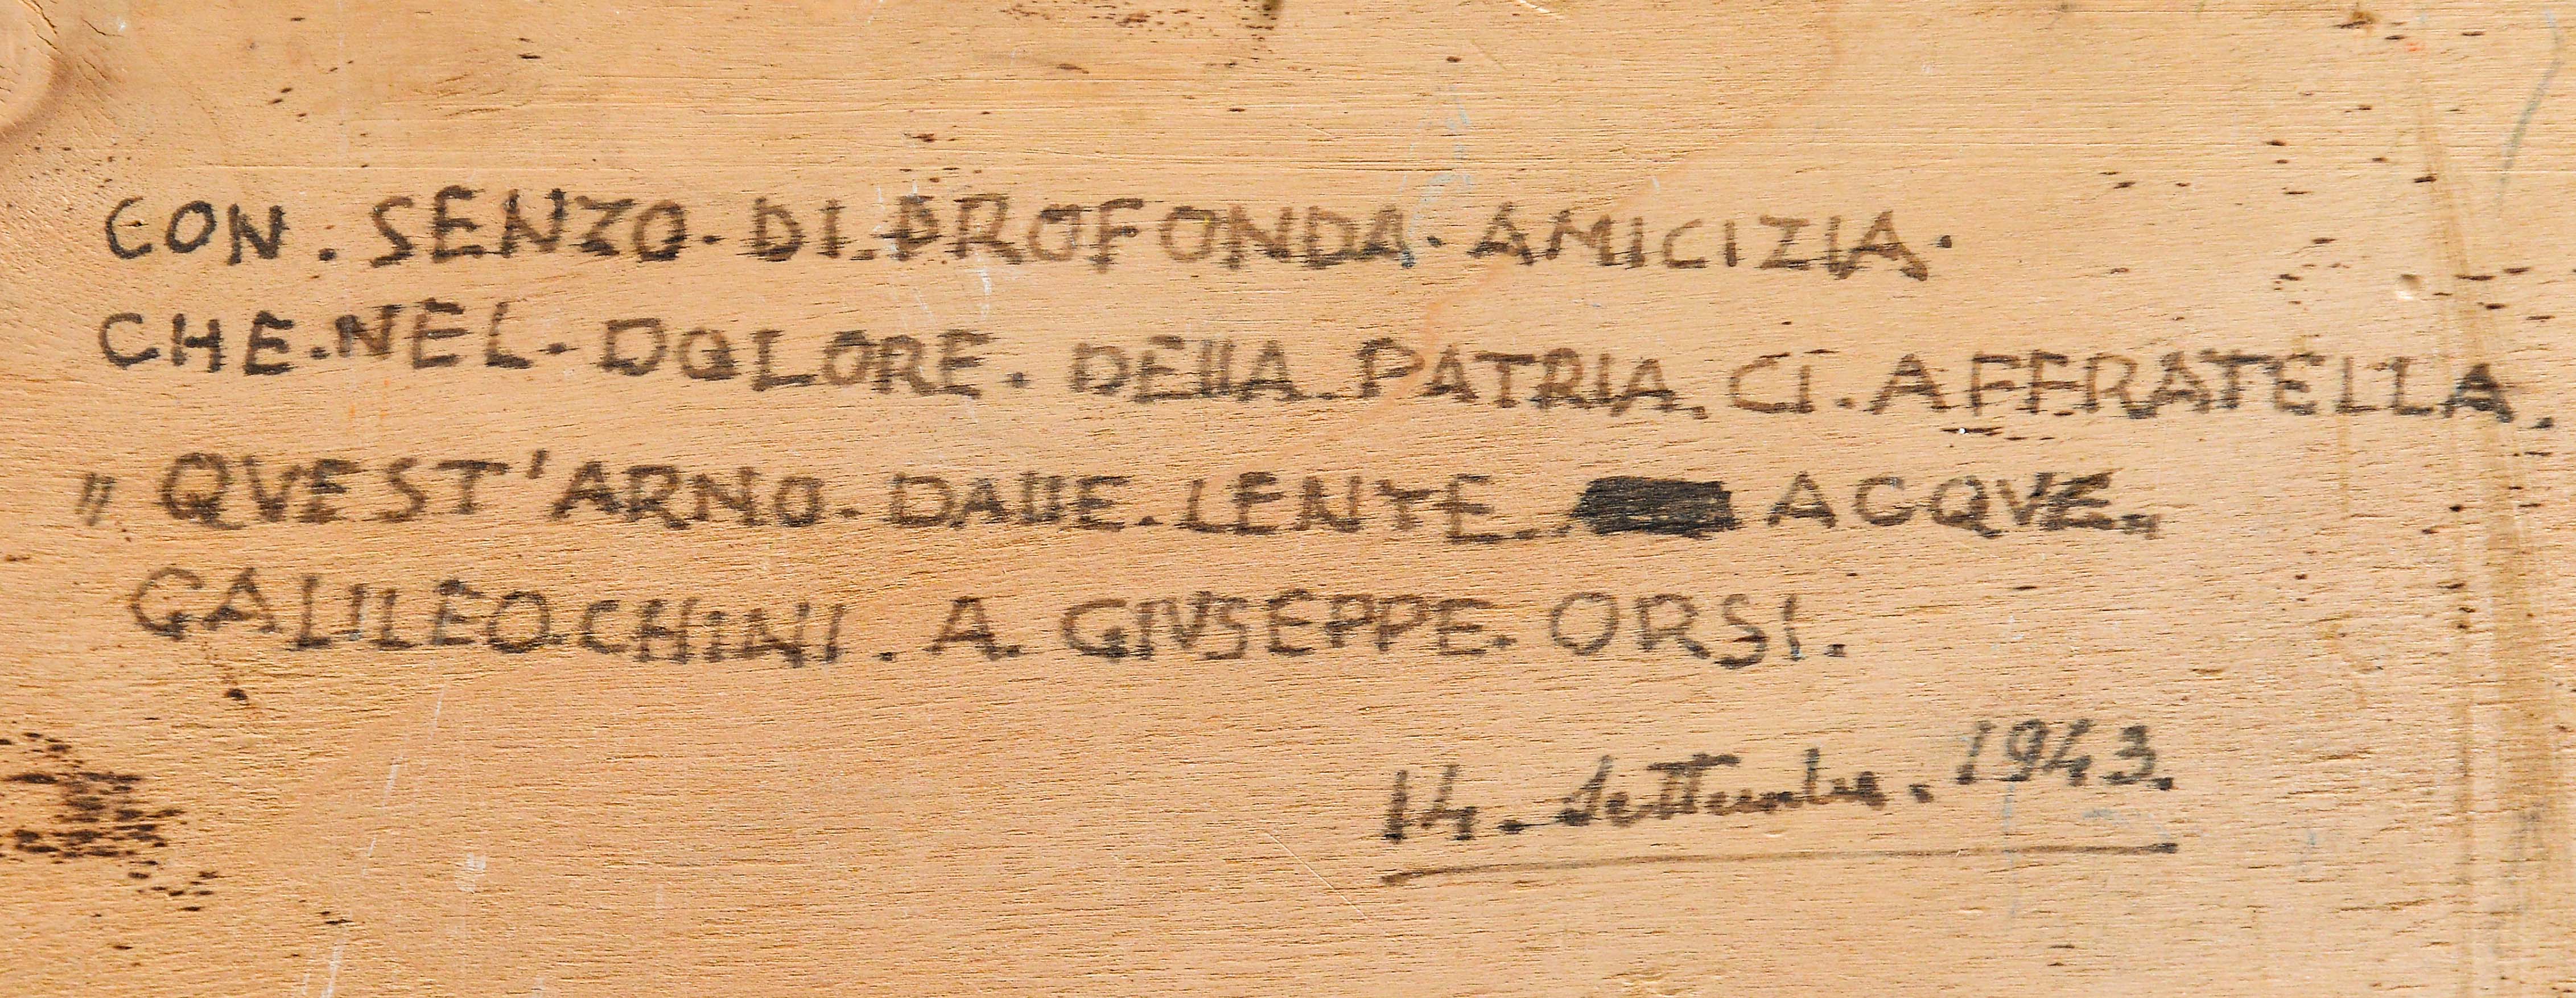 CON. SENZO. DI. PROFONDA. AMICIZIA.
CHE. NEL. DOLORE. DELLA. PATRIA. CI. AFFRATELLA.
„ QVEST'ARNO. DALLE. LENTE. ACQVE„
GALILEO. CHINI. A. GIVSEPPE. ORSI.
14. Settembre. 1943.